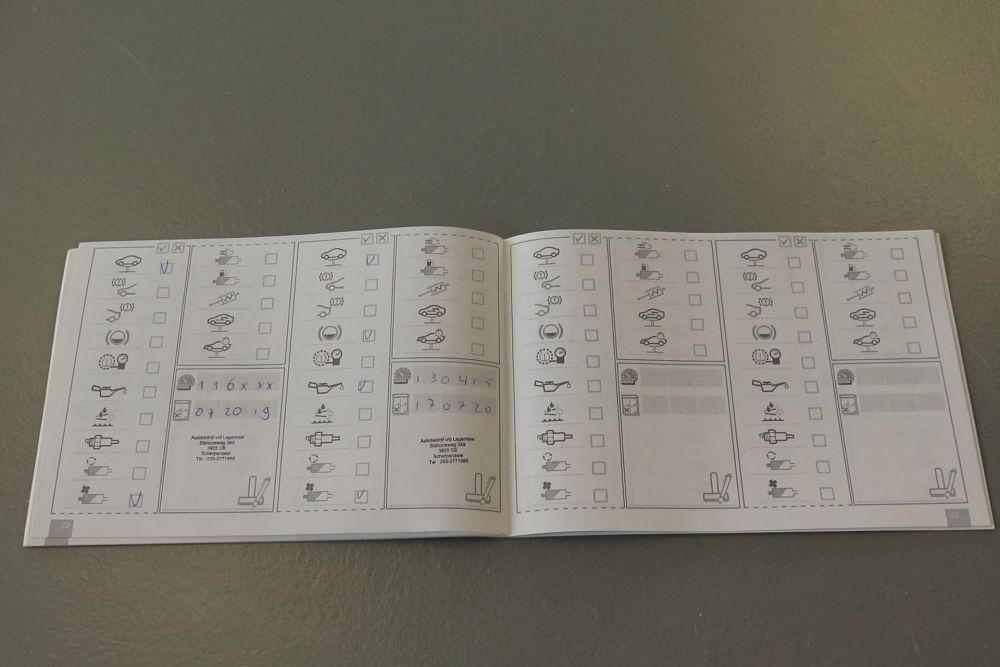 116xxx
072019
Autobedrijf v/d Lagemaat
Stationsweg 349
3925 CE
Scherpenzeel
Tel : 033-2771556
130415
170720
Autobedrijf v/d Lagemaat
Stationsweg 349
3925 CE
Scherpenzeel
Tel : 033-2771556
22
23